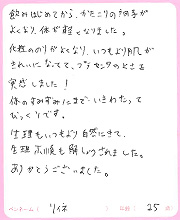 飲みはじめてから、かたこりの調子が
よくなり、体が軽くなりました。
化粧ののりがよくなり、いつもより肌が
きれいになってて、プラセンタのよさを
実感しました！
体のすみずみにまで、いきわたって
びっくりです。
生理もいつもより自然にきて、
生理不順も解しょうされました。
ありがとうございました。
ペンネーム（ リイネ ） 年齢（ 25 歳）